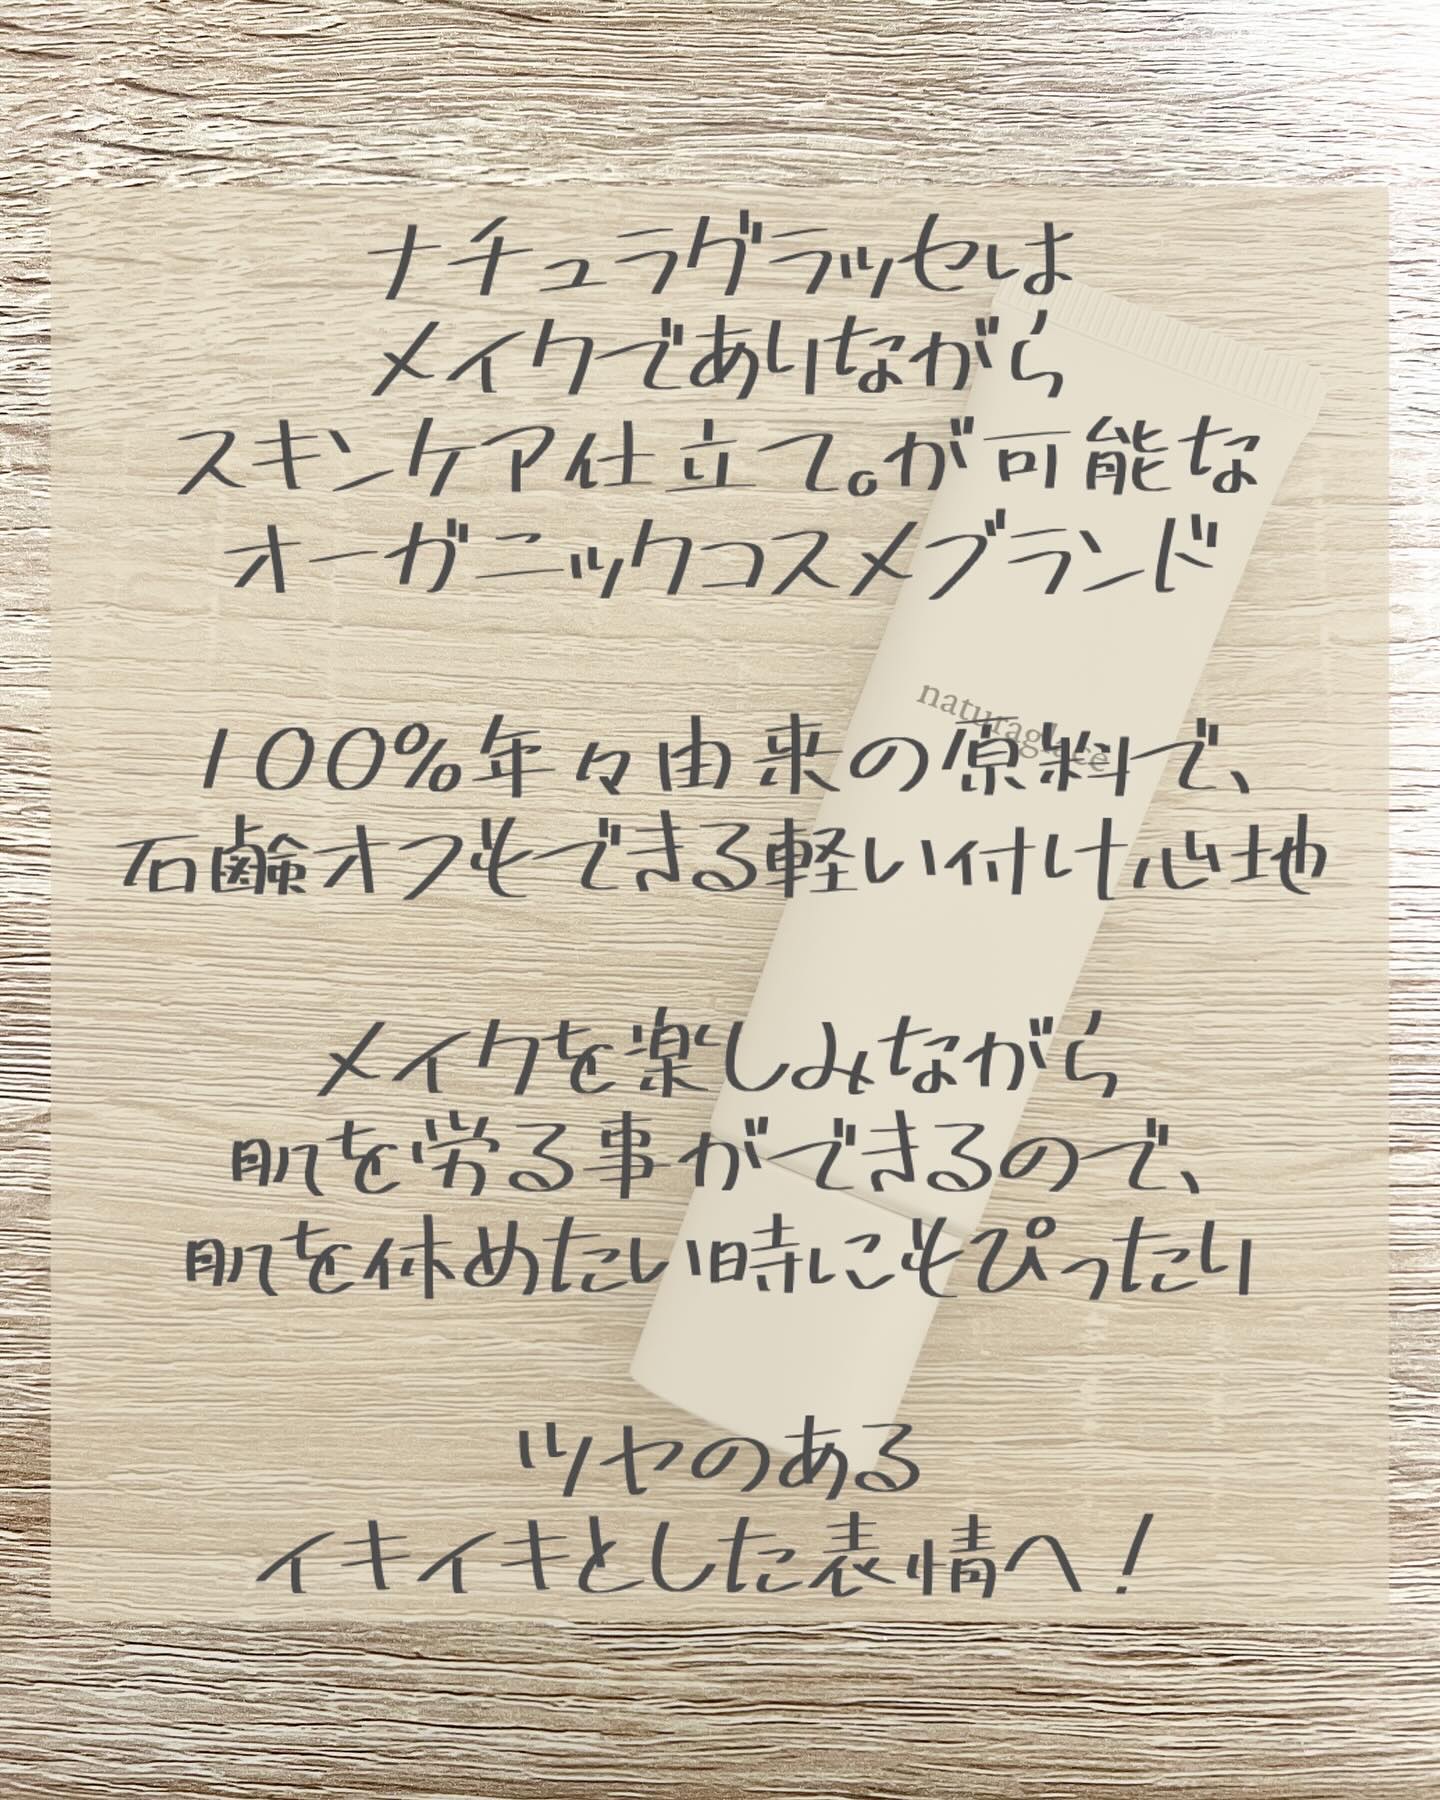 ナチュラグラッセは
メイクでありながら
スキンケア仕立て。が可能な
オーガニックコスメブランド
naturaglacé
100%年々由来の原料で、
石鹸オフもできる軽い付け心地
メイクを楽しみながら
肌を労る事ができるので、
肌を休めたい時にもぴったり
ツヤのある
イキイキとした表情へ！